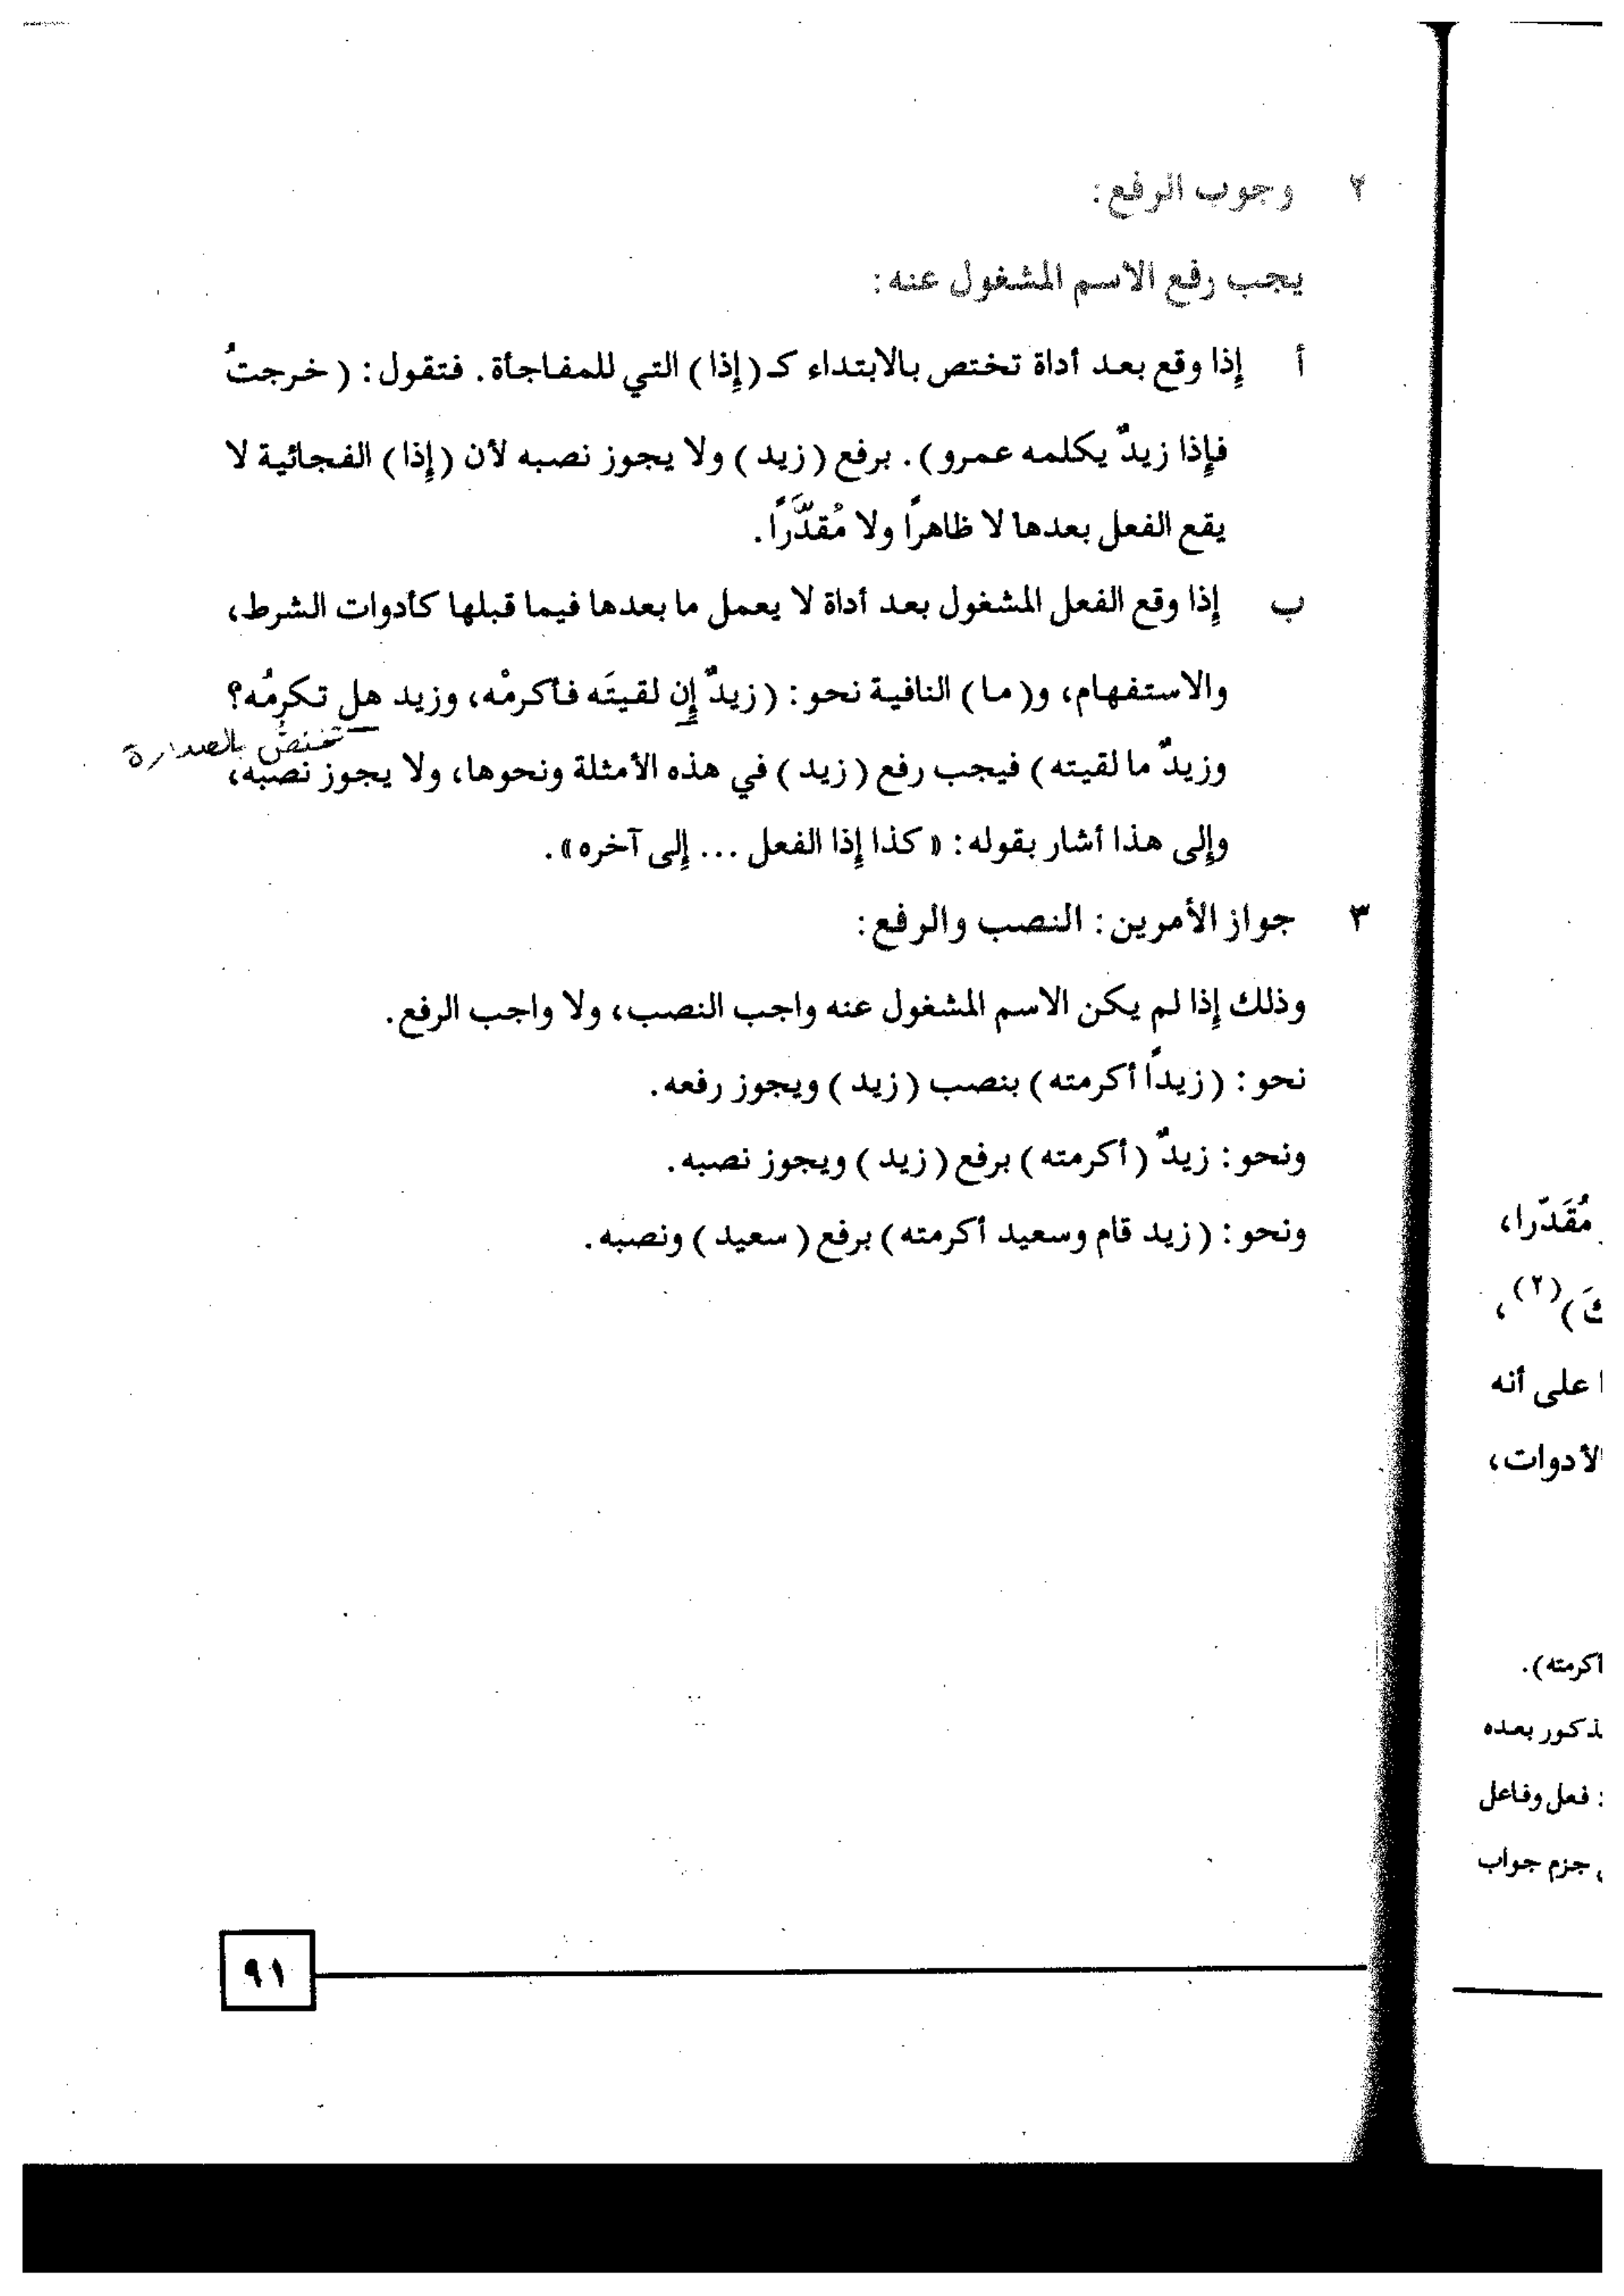 ٢ وجوب الرفع:
يجب رفع الاسم المشغول عنه:
أ إِذا وقع بعد أداة تختص بالابتداء كـ (إِذا) التي للمفاجأة. فتقول: (خرجتُ
فإِذا زيدٌ يكلمه عمرو). برفع (زيد) ولا يجوز نصبه لأن (إِذا) الفجائية لا
يقع الفعل بعدها لا ظاهرًا ولا مُقدَّرًا.
ب إِذا وقع الفعل المشغول بعد أداة لا يعمل ما بعدها فيما قبلها كأدوات الشرط،
والاستفهام، و(ما) النافية نحو: (زيدٌ إِن لقيتَه فأكرمْه، وزيد هل تكرمُه؟
تختصّ بالصدارة
وزيدٌ ما لقيته) فيجب رفع (زيد) في هذه الأمثلة ونحوها، ولا يجوز نصبه،
وإِلى هذا أشار بقوله: «كذا إِذا الفعل ... إِلى آخره».
٣ جواز الأمرين: النصب والرفع:
وذلك إِذا لم يكن الاسم المشغول عنه واجب النصب، ولا واجب الرفع.
نحو: (زيداً أكرمته) بنصب (زيد) ويجوز رفعه.
ونحو: زيدٌ (أكرمته) برفع (زيد) ويجوز نصبه.
ونحو: (زيد قام وسعيد أكرمته) برفع (سعيد) ونصبه.
٩١
مُقَدّرا،
كَ)(٢)،
على أنه
الأدوات،
أكرمته).
بعده
: فعل وفاعل
جزم جواب